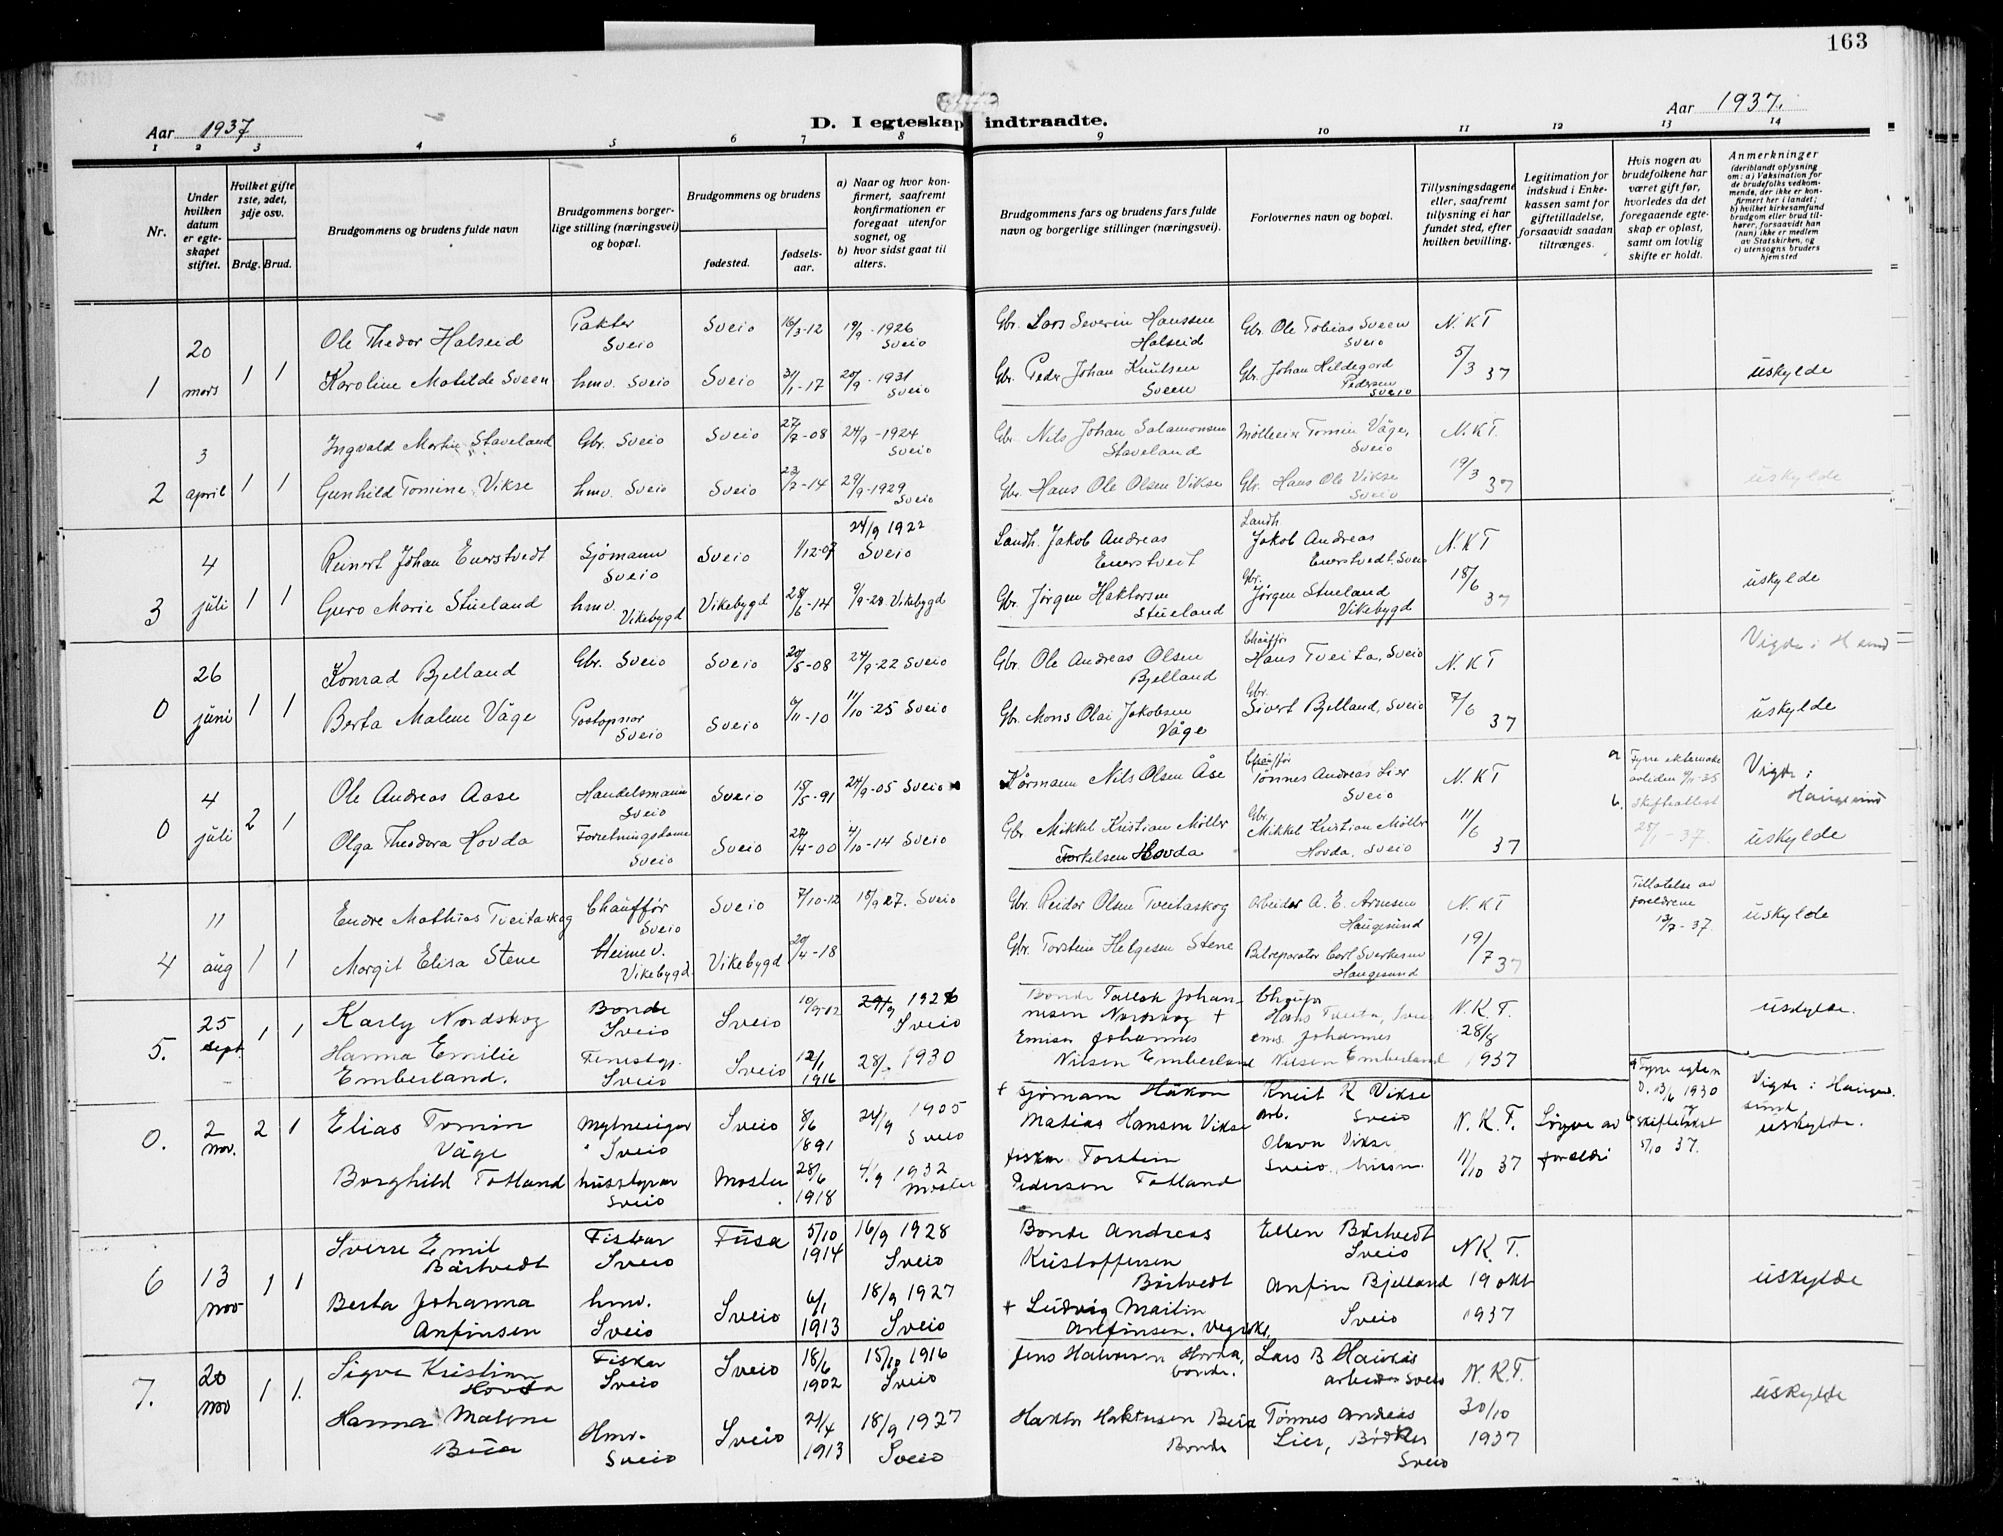 163
Aar 1937
D. I egteskap indtraadte.
Aar 1937.
1 2 3 4 5 6 7 8 9 10 11 12 13 14
Nr.
Under hvilken datum er egteskapet stiftet.
Hvilket gifte 1ste, 2det, 3dje osv.
Brdg. Brud.
Brudgommens og brudens fulde navn
Brudgommens borgerlige stilling (næringsvei) og bopæl.
Brudgommens og brudens
fødested.
fødselsaar.
a) Naar og hvor konfirmert, saafremt konfirmationen er foregaat utenfor sognet, og
b) hvor sidst gaat til alters.
Brudgommens fars og brudens fars fulde navn og borgerlige stillinger (næringsvei).
Forlovernes navn og bopæl.
Tillysningsdagene eller, saafremt tillysning ei har fundet sted, efter hvilken bevilling.
Legitimation for indskud i Enkekassen samt for giftetilladelse, forsaavidt saadan tiltrænges.
Hvis nogen av brudefolkene har været gift før, hvorledes da det foregaaende egteskap er opløst, samt om lovlig skifte er holdt.
Anmerkninger
(deriblandt oplysning om: a) Vaksination for de brudefolks vedkommende, der ikke er konfirmert her i landet; b) hvilket kirkesamfund brudgom eller brud tilhører, forsaavidt han (hun) ikke er medlem av Statskirken, og c) utensogns bruders hjemsted
1 20 mars 1 1
Ole Thedor Halseid Pakter Sveio Sveio 16/3-12 19/9-1926 Sveio Gbr. Lars Severin Hanssen Halseid Gbr. Ole Tobias Sveen Sveio N.KT
Karoline Matilde Sveen hmv. Sveio Sveio 31/1-17 20/9-1931 Sveio Gbr. Peder Johan Knutsen Sveen Gbr. Johan Hildegard Pedersen Sveio 5/3 37 uskylde
2 3 april 1 1
Ingvald Martin Staveland Gbr. Sveio Sveio 27/7-08 24/9-1924 Sveio Gbr. Nils Johan Salamonsen Staveland Tomin Våge, Sveio N.KT.
Gunhild Tomine Vikse hmv. Sveio Sveio 23/2-14 29/9-1929 Sveio Gbr. Hans Ole Olsen Vikse Gbr. Hans Ole Vikse Sveio 19/3 37 uskylde
3 4 juli 1 1
Reinert Johan Enerstvedt Sjømann Sveio Sveio 1/12-07 24/9 1922 Sveio Landh. Jakob Andreas Enerstvedt Landh Jakob Andreas Enerstvedt, Sveio N.KT
Guro Marie Stueland hmv. Vikebygd Vikebygd 28/6-14 9/9-28 Vikebygd Gbr. Jørgen Haktorsen Stueland Gbr. Jørgen Stueland Vikebygd 18/6 37 uskylde
0 26 juni 1 1
Konrad Bjelland Gbr. Sveio Sveio 20/5-08 24/9-22 Sveio Gbr. Ole Andreas Olsen Bjelland Chauffør Hans Tveita, Sveio N.KT Vigde i
Berta Malene Våge Postopnar Sveio Sveio 6/11-10 11/10-25 Sveio Gbr. Mons Olai Jakobsen Våge Gbr. Sivert Bjelland, Sveio 7/6 37 uskylde
0 4 juli 2 1
Ole Andreas Aase Handelsmann Sveio Sveio 15/5-91 24/9-05 Sveio Kårmann Nils Olsen Åse Chauffør Tønnes Andreas Lier Sveio N.KT a. Fyrre 11/11-35 Vigde i Haugesund
Olga Theodora Hovda Forretningsdame Sveio Sveio 27/4-00 4/10-14 Sveio Gbr. Mikkel Kristian Møller Torkelsen Hovda Gbr. Mikkel Kristian Møller Hovda, Sveio 11/6 37 b. 25/1-37. uskylde
4 11 aug 1 1
Endre Mathias Tveitaskog Chauffør Sveio Sveio 7/10-12 18/9 27. Sveio Gbr. Reidar Olsen Tveitaskog Arbeider A. E. Arnesen Haugesund N.KT Tillatelse av foreldrene 13/7-37. uskylde
Margit Elisa Stene Heimev. Vikebygd. Vikebygd 20/4-18 Gbr. Torstein Helgesen Stene Bilreparatør Carl Haugesund 19/7 37
5. 25 sept. 1 1
Karly Nordskog Bonde Sveio Sveio 10/9-02 24/9 1926 Sveio Bonde Johannesen Nordskog + Hans Tveita, N.K.T.
Hanna Emilie Emberland. Sveio Sveio 12/1 1916 28/ 1930 Johannes Nilsen Emberland Johannes Nilsen Emberland 28/8 1937 uskylde.
0. 2 nov. 2 1
Elias Tomin Våge Sveio Sveio 8/6 1891 24/9 1905 Sveio + Sjømann Håkon Matias Hansen Vikse Knut K Vikse arb. Sveio N.K.T. Løyve av foreldri a Fyrre egtem D. 13/6 1930 b skifteløst 5/10 37. Vigde i Haugesund uskylde.
Borghild Totland Sveio Moster 28/6 1918 4/9 1932 Moster Fiskar Torstein Pedersen Totland Olava Vikse Sveio. 11/10 37
6 13 nov 1 1
Sverre Emil Bårtvedt Fiskar Sveio Fusa 5/10 1914 16/9 1928 Sveio Bonde Andreas Kristoffersen Bårtvedt Ellen Bårtvedt Sveio N.K.T.
Berta Johanna Anfinsen hmv. Sveio Sveio 6/1 1913 18/9 1927 Sveio + Ludvig Martin Anfinsen. Anfin Bjelland Sveio 19 okt 1937 uskylde
7. 20 nov 1 1.
Sigve Kristian Hovda Fiskar Sveio Sveio 18/6 1902 15/10 1916 Sveio Jens Halvorsen Hovda, bonde. Lars B Haukås arbeider Sveio N.K.T.
Hanna Malene Bua Hmv. Sveio Sveio 21/4 1913 18/9 1927 Sveio Haktor Haktorsen Bua Bonde Tønnes Andreas Lier, Bødker Sveio 30/10 1937 uskylde